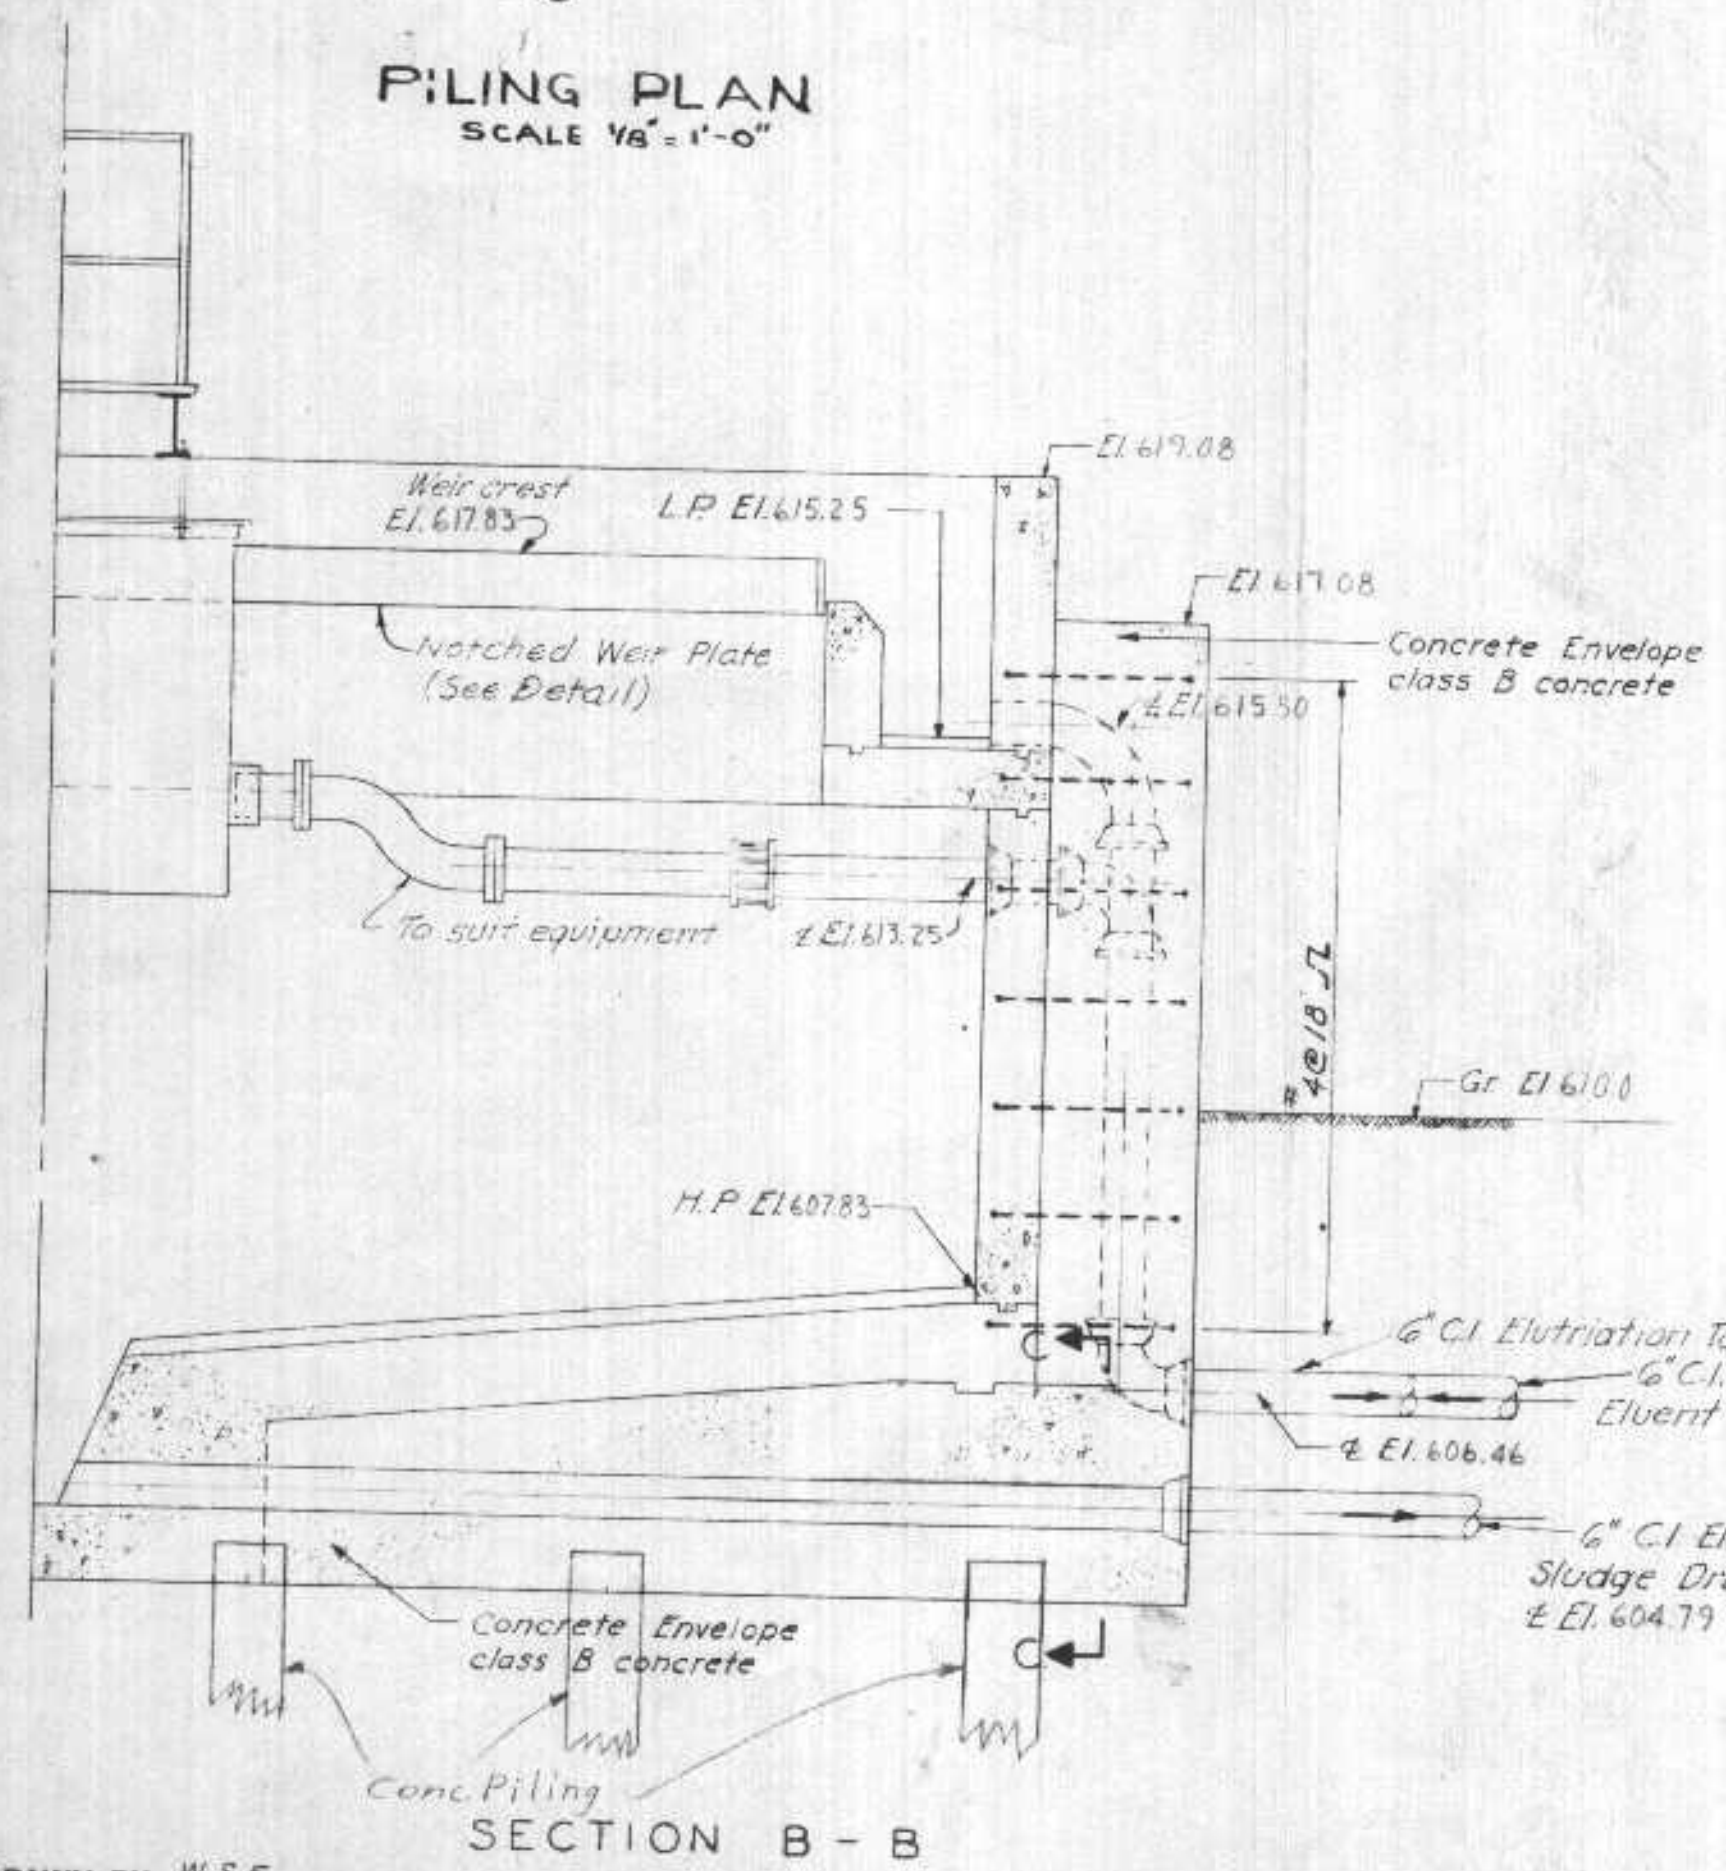 PILING PLAN
SCALE 1/8" = 1'-0"
El. 619.08
Weir crest
El. 617.83
L.P. El. 615.25
El. 617.08
Concrete Envelope
class B concrete
Notched Weir Plate
(See Detail)
℄ El. 615.50
To suit equipment
℄ El. 613.25
#4@18
Gr. El. 610.0
H.P. El. 607.83
6" C.I. Elutriation
C
6" C.I.
Eluent
℄ El. 606.46
6" C.I.
Sludge
℄ El. 604.79
Concrete Envelope
class B concrete
C
Conc. Piling
SECTION B-B
W.S.F.